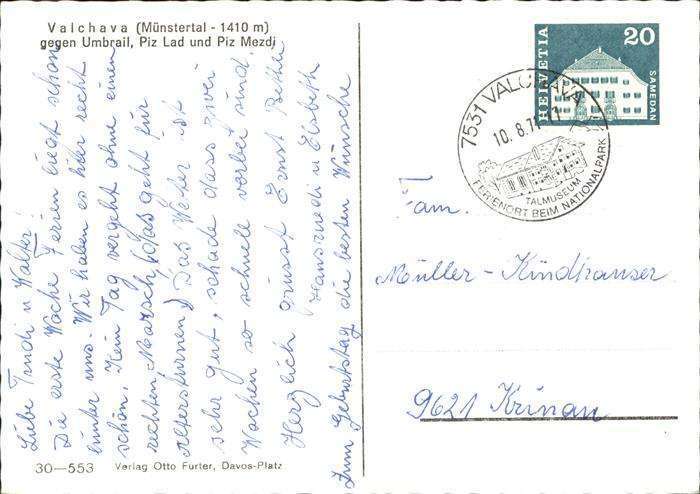 Valchava (Münstertal - 1410 m)
gegen Umbrail, Piz Lad und Piz Mezdi
Liebe Trudi u Walter!
Die erste Woche Ferien liegt schon
hinter uns. Wir haben es hier recht
schön. Kein Tag vergeht ohne einen
rechten Marsch (das geht für
Altersturnen) Das Weter ist
sehr gut, schade dass zwei
Wochen so schnell vorbei sind.
Herzlich grüsst Ernst Bethli
Hansruedi u Elsbeth
Zum Geburtstag die besten Wünsche
30—553 Verlag Otto Furter, Davos-Platz
HELVETIA
20
SAMEDAN
7531 VALCHAVA
10.8.71
TALMUSEUM
FERIENORT BEIM NATIONALPARK
Fam.
Müller - Kindhauser
9621 Krinau